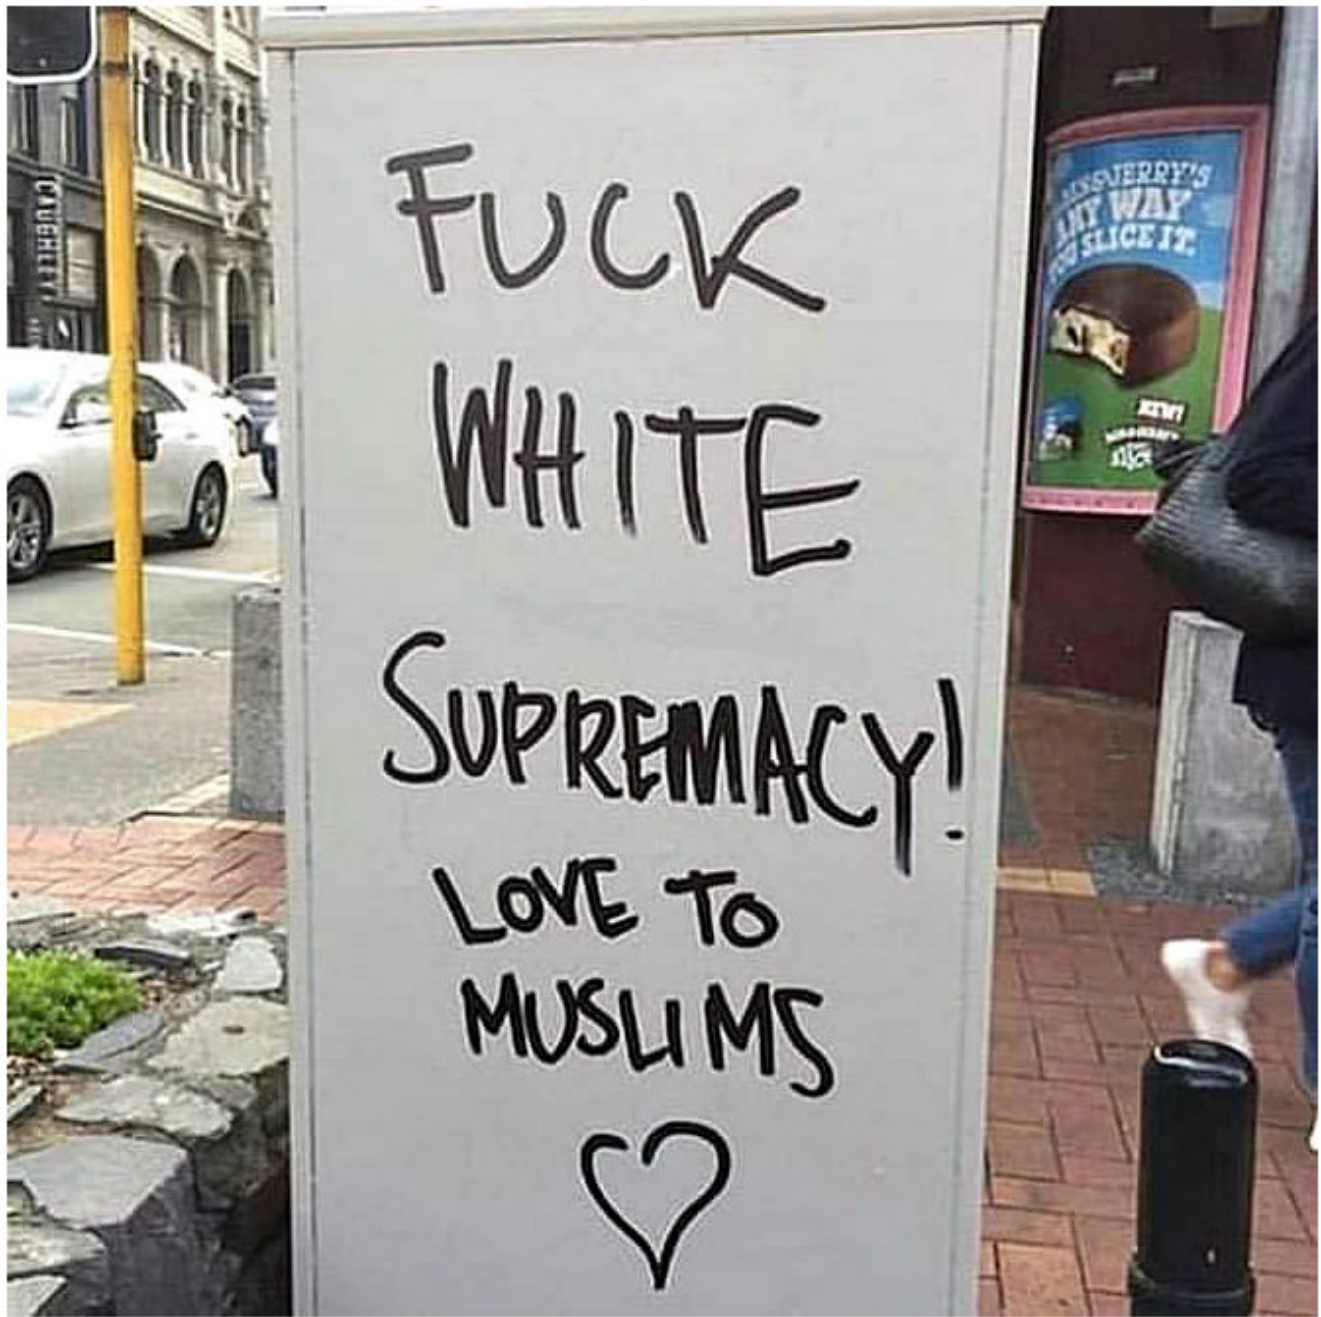 FUCK
WHITE
SUPREMACY!
LOVE TO
MUSLIMS
JERRY'S
ANY WAY
YOU SLICE IT.
NEW!
CAUGHLEY